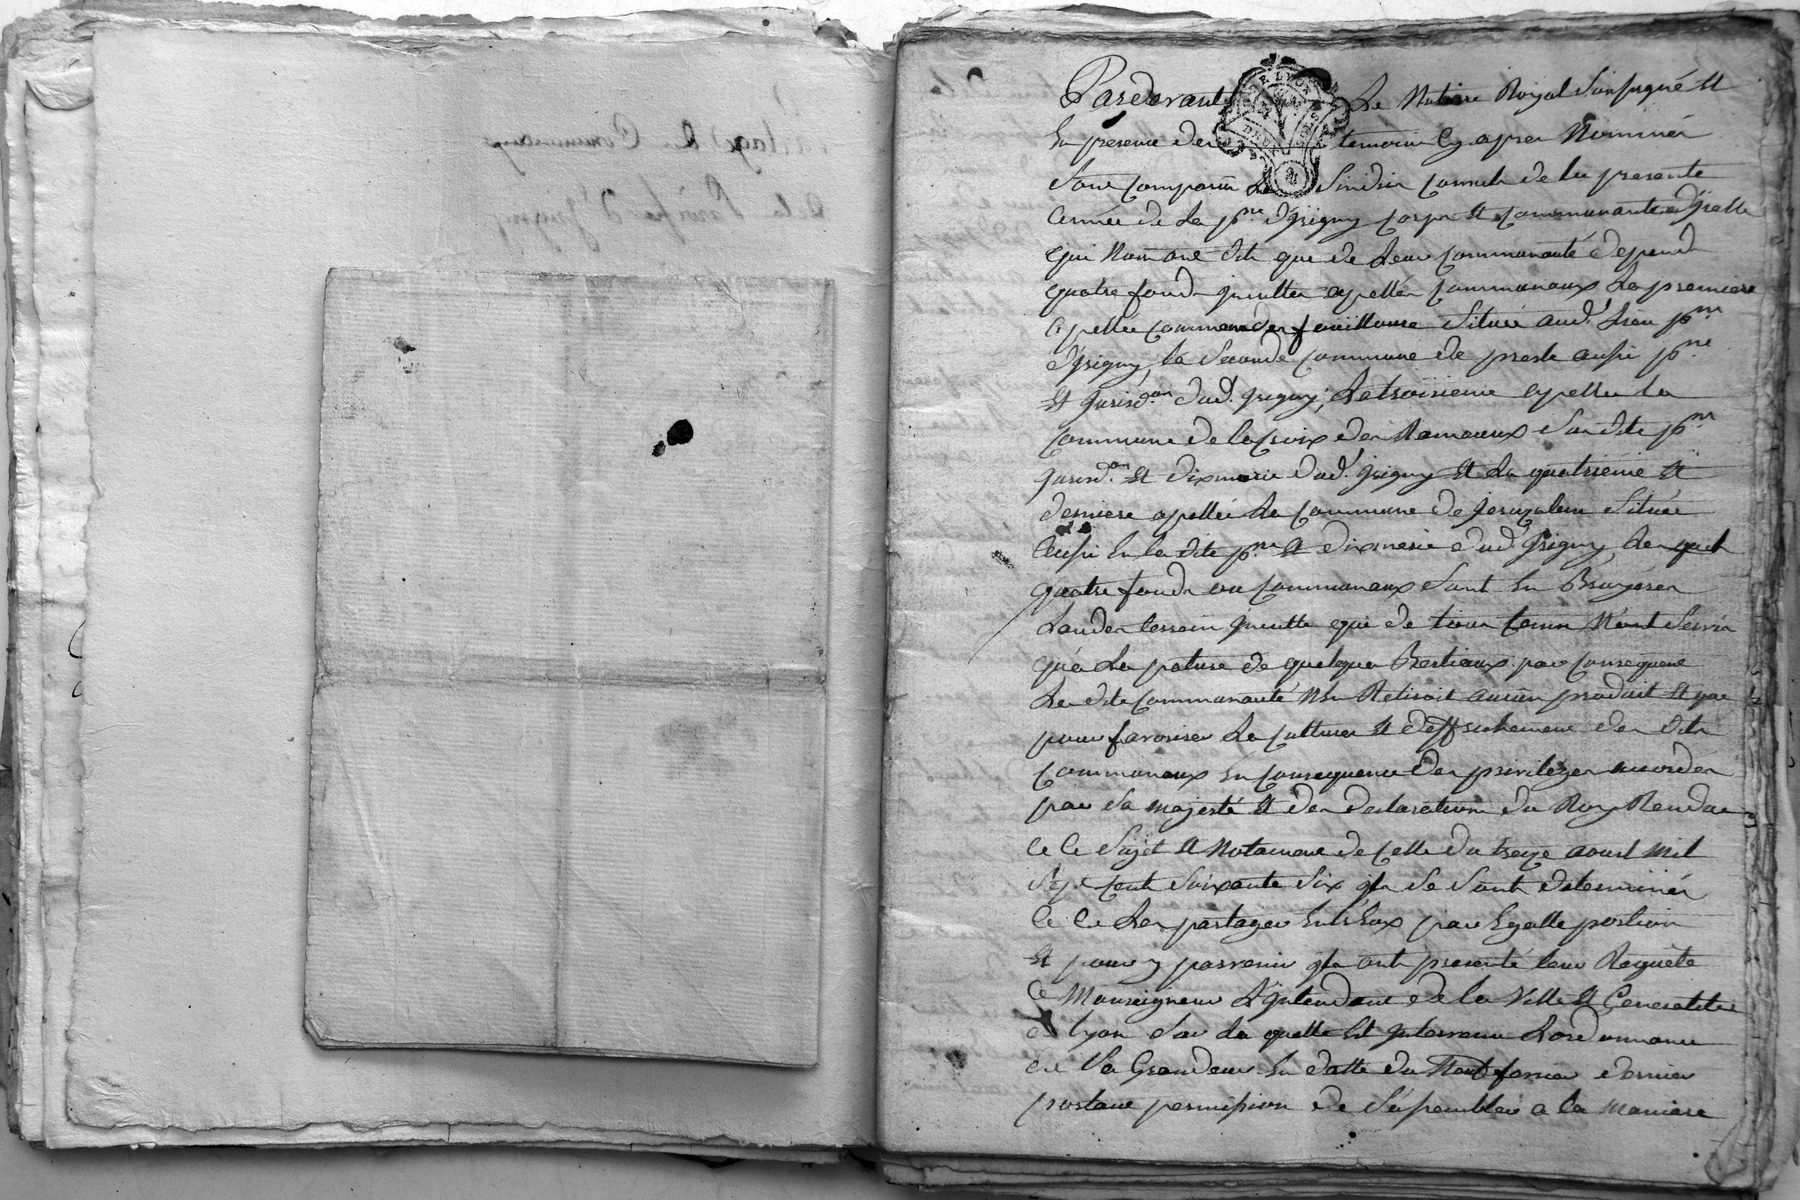 Pardevant Le Notaire Royal Soussigné Et
En presence des temoins Cy apres Nommés
Sont comparus Les Sindics consuls de la presente
année de La psse d'Yrigny corps Et communauté d'Yselle
qui Nom ont dit que de Leur communauté depend
quatre fonds incultes apellés communaux La premiere
apellée commune des fouillouse Située aud. Lieu psse
d'Yrigny, la Seconde commune de presle aussi psse
Et Jurisd.on dud. Yrigny; La troisieme apellée La
commune de la Croix des Rameaux Susdite psse
Jurisd.on Et dixmerie dud. Yrigny Et La quatrieme Et
derniere apellée La commune de Jeruzalem Située
aussi En la dite psse Et dixmerie dud Yrigny, Lesquels
quatre fonds ou communaux Sont En Bruyeres
Landes terrein inculte qui de tous tems N'ont Servis
qu'a La pature de quelques Bestiaux par consequent
La dite communauté N'En Retiroit aucun produit Et que
pour favoriser La culture Et deffrichement des dits
communaux En consequence des privileges accordés
par Sa majesté Et des declarations du Roy Rendues
a Ce Sujet Et Notament de Celle du treize aoust Mil
Sept cent Soixante Six ils Se Sont determinés
a Les partager Entr'Eux par Egalle portion
Et pour y parvenir ils ont presenté leur Requête
a Monseigneur L'Intendant de la Ville Et Generalitée
de Lyon Sur La quelle Est Intervenue L'ordonnance
de Sa Grandeur En datte du Neuf fevrier dernier
portant permission de S'assembler a la maniere
partage des Communaux
de la Paroisse d'Yrigny